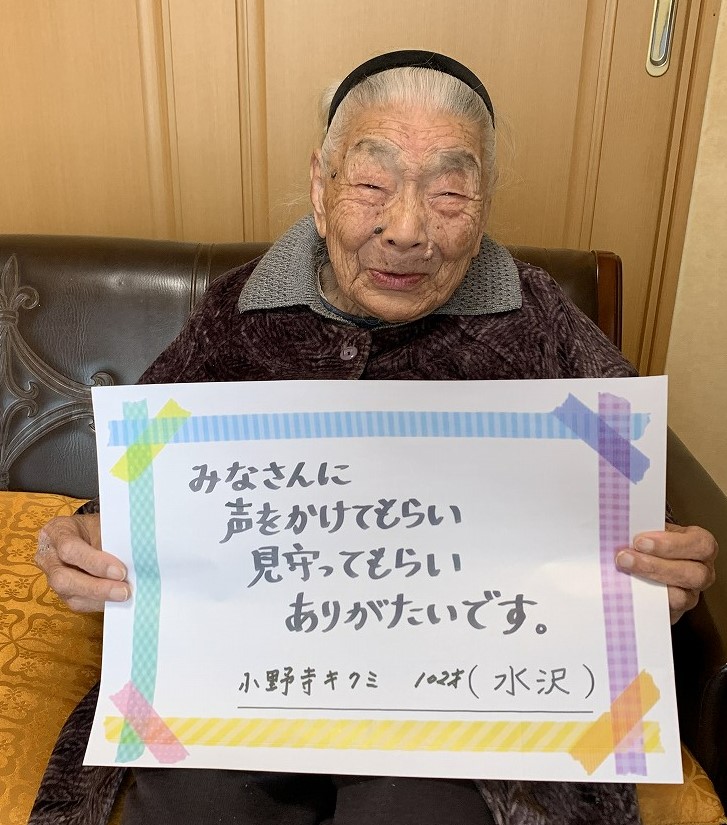 みなさんに
声をかけてもらい
見守ってもらい
ありがたいです。
小野寺キクミ 102才(水沢)